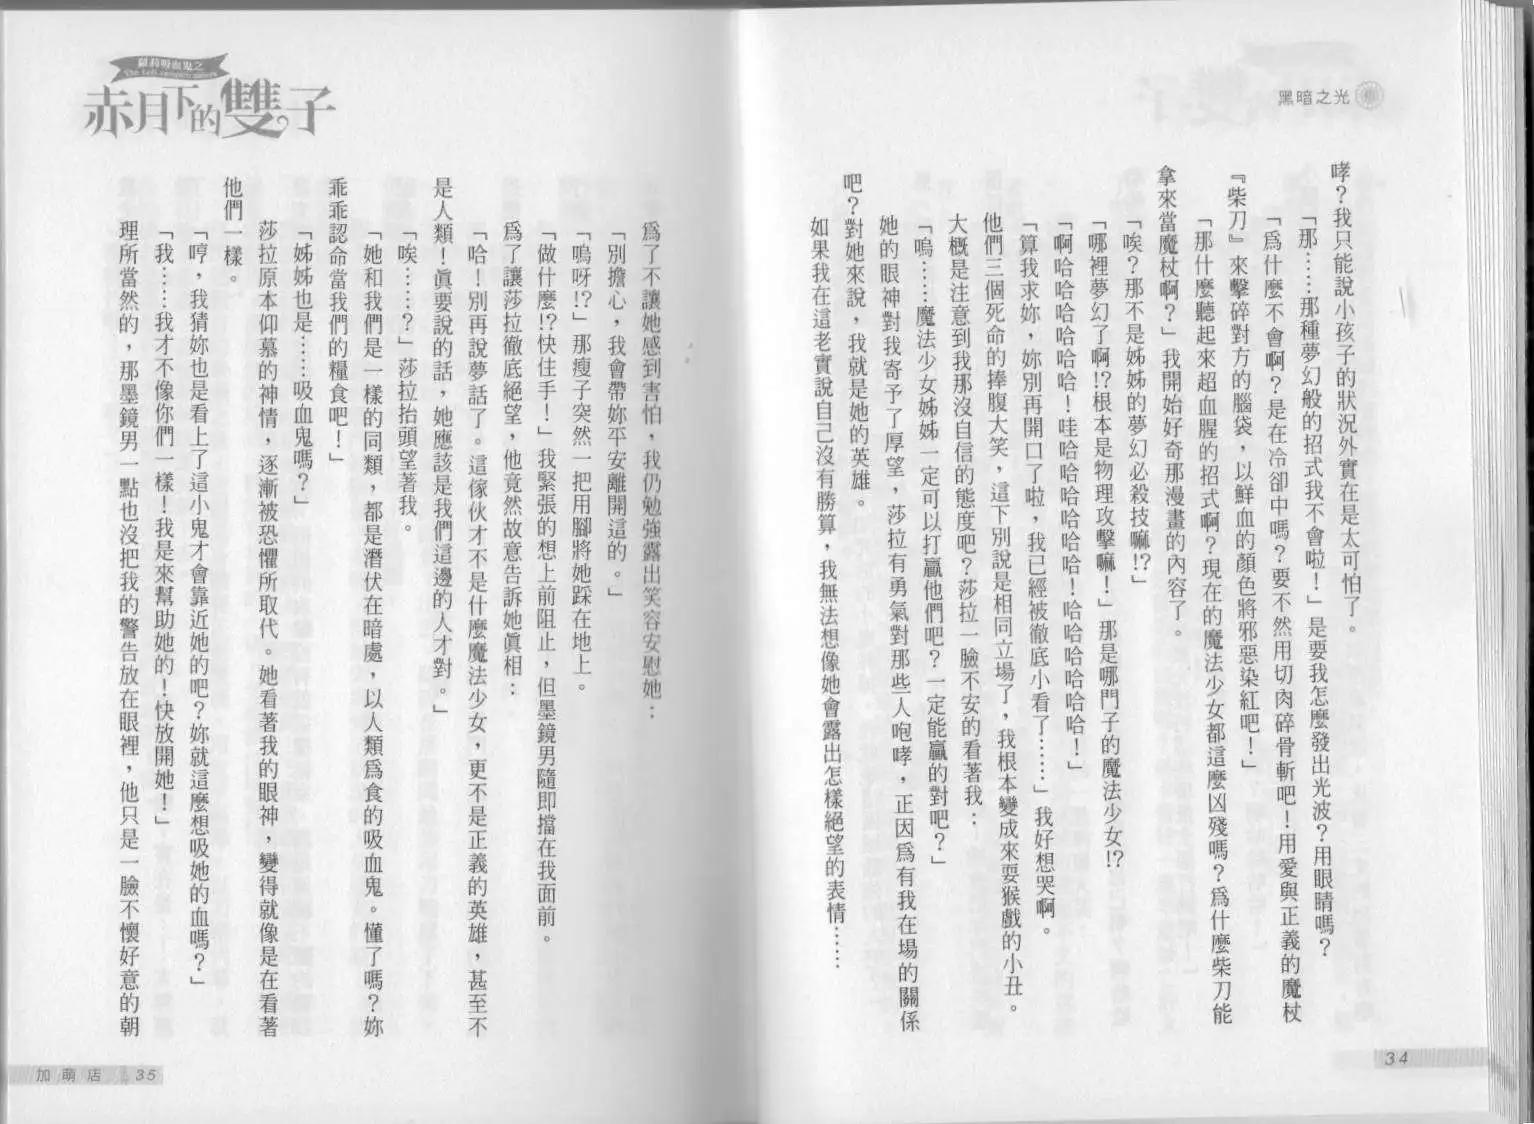 黑暗之光
哮？我只能說小孩子的狀況外實在是太可怕了。
「那……那種夢幻般的招式我不會啦！」是要我怎麼發出光波？用眼睛嗎？
「為什麼不會啊？是在冷卻中嗎？要不然用切肉碎骨斬吧！用愛與正義的魔杖
『柴刀』來擊碎對方的腦袋，以鮮血的顏色將邪惡染紅吧！」
「那什麼聽起來超血腥的招式啊？現在的魔法少女都這麼凶殘嗎？為什麼柴刀能
拿來當魔杖啊？」我開始好奇那漫畫的內容了。
「唉？那不是姊姊的夢幻必殺技嘛!?」
「哪裡夢幻了啊!?根本是物理攻擊嘛！」那是哪門子的魔法少女!?
「啊哈哈哈哈哈哈！哇哈哈哈哈哈哈！哈哈哈哈哈哈！」
「算我求妳，妳別再開口了啦，我已經被徹底小看了……」我好想哭啊。
他們三個死命的捧腹大笑，這下別說是相同立場了，我根本變成來耍猴戲的小丑。
大概是注意到我那沒自信的態度吧？莎拉一臉不安的看著我：
「嗚……魔法少女姊姊一定可以打贏他們吧？一定能贏的對吧？」
她的眼神對我寄予了厚望，莎拉有勇氣對那些人咆哮，正因為有我在場的關係
吧？對她來說，我就是她的英雄。
如果我在這老實說自己沒有勝算，我無法想像她會露出怎樣絕望的表情……
34
蘿莉吸血鬼之
赤月下的雙子
為了不讓她感到害怕，我仍勉強露出笑容安慰她：
「別擔心，我會帶妳平安離開這的。」
「嗚呀!?」那瘦子突然一把用腳將她踩在地上。
「做什麼!?快住手！」我緊張的想上前阻止，但墨鏡男隨即擋在我面前。
為了讓莎拉徹底絕望，他竟然故意告訴她真相：
「哈！別再說夢話了。這傢伙才不是什麼魔法少女，更不是正義的英雄，甚至不
是人類！真要說的話，她應該是我們這邊的人才對。」
「唉……？」莎拉抬頭望著我。
「她和我們是一樣的同類，都是潛伏在暗處，以人類為食的吸血鬼。懂了嗎？妳
乖乖認命當我們的糧食吧！」
「姊姊也是……吸血鬼嗎？」
莎拉原本仰慕的神情，逐漸被恐懼所取代。她看著我的眼神，變得就像是在看著
他們一樣。
「哼，我猜妳也是看上了這小鬼才會靠近她的吧？妳就這麼想吸她的血嗎？」
「我……我才不像你們一樣！我是來幫助她的！快放開她！」
理所當然的，那墨鏡男一點也沒把我的警告放在眼裡，他只是一臉不懷好意的朝
加萌店 35